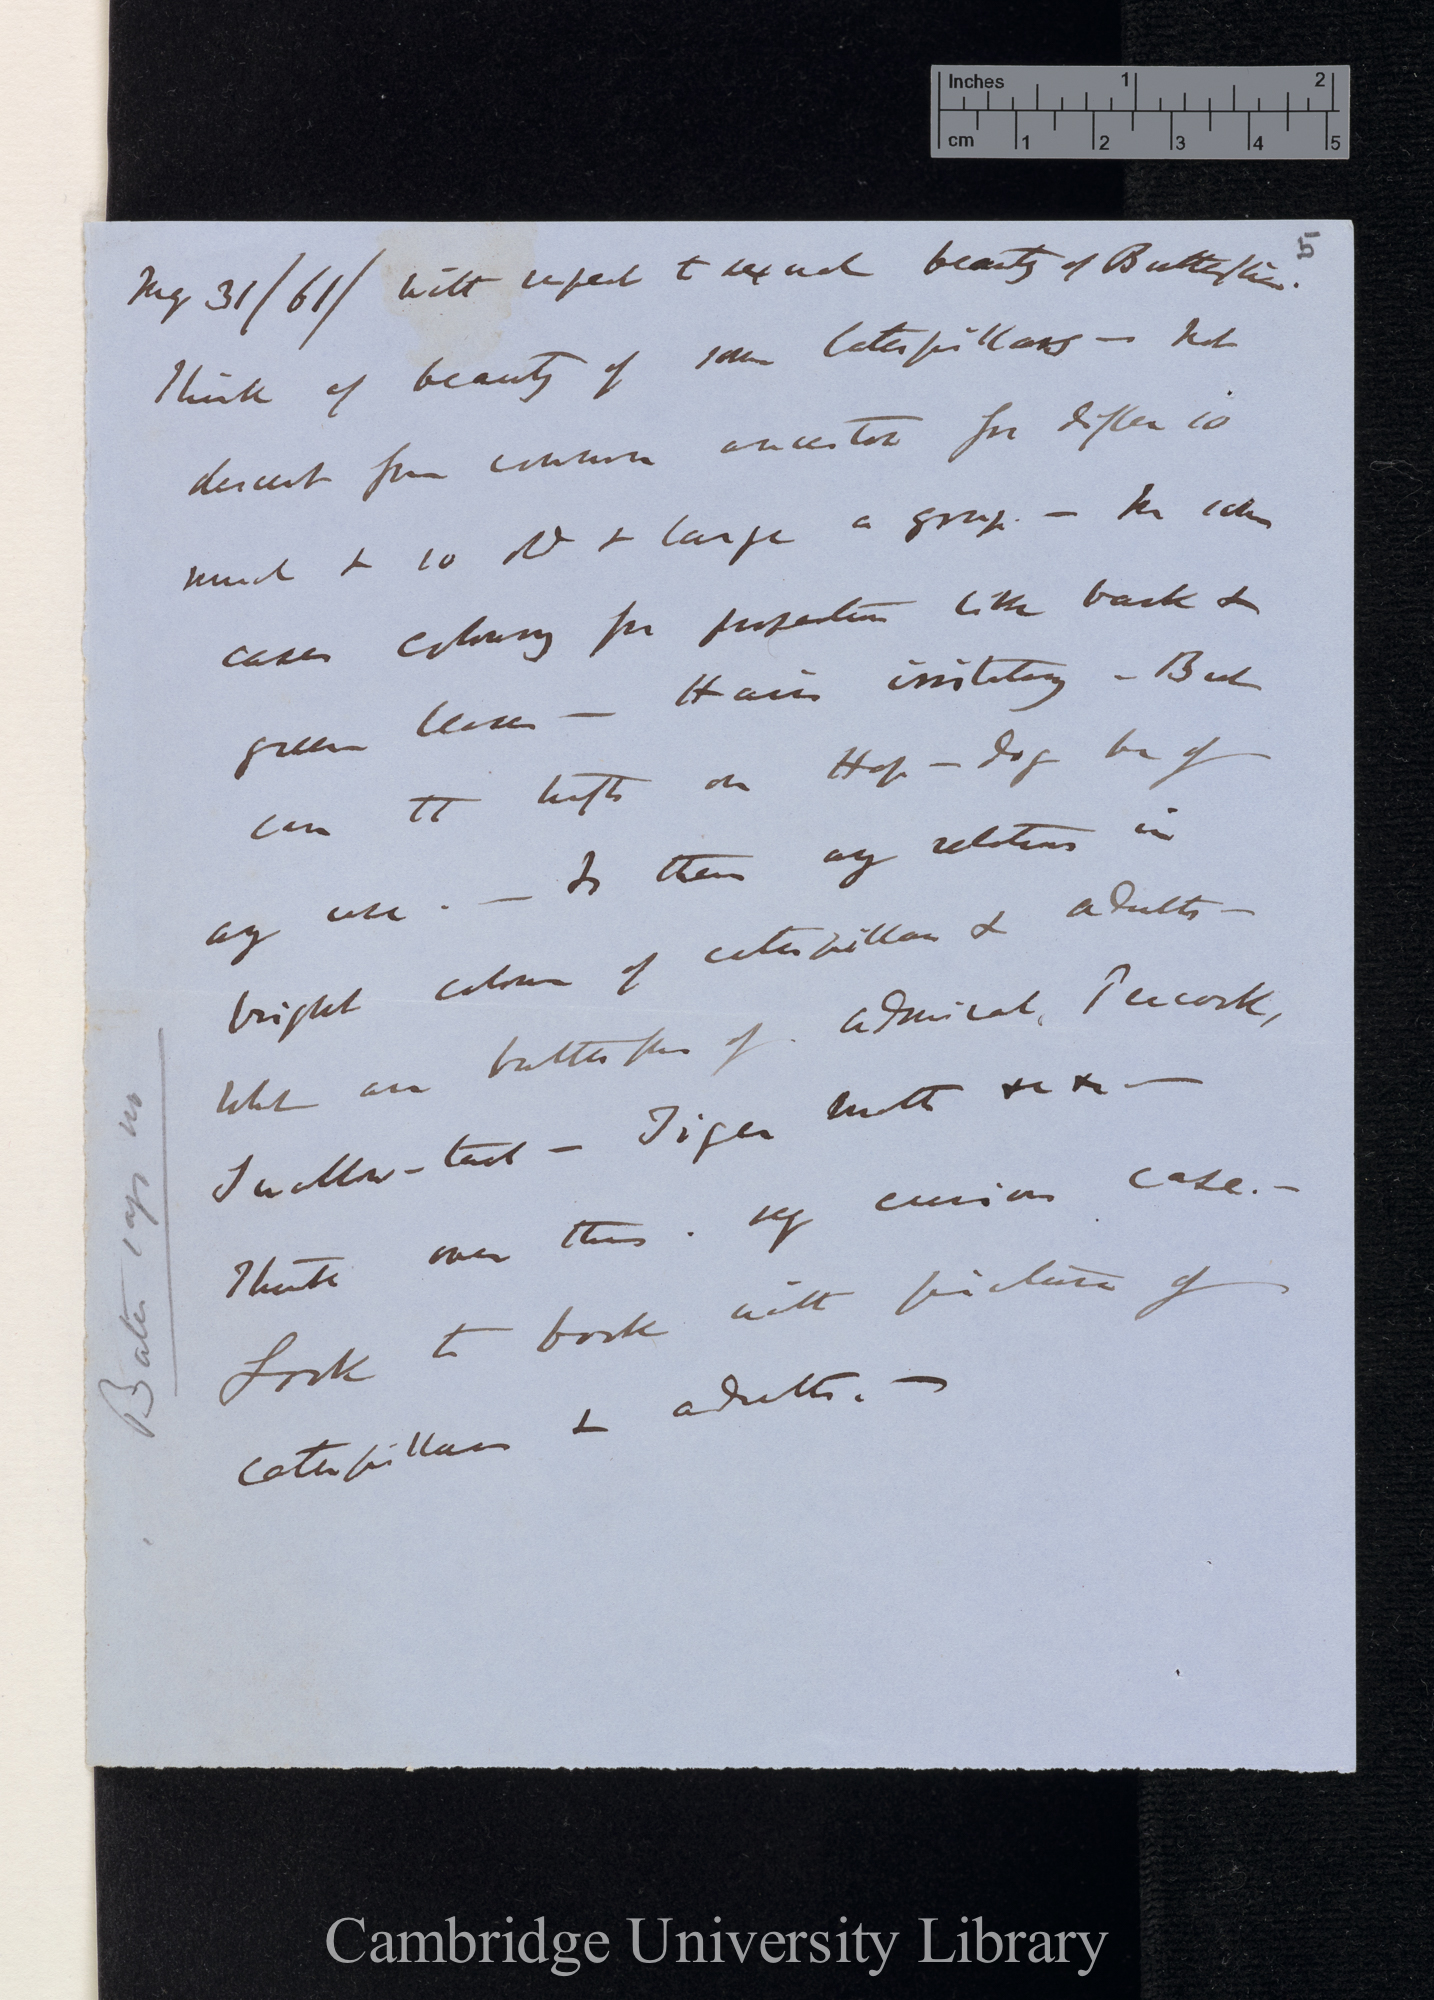 Inches 1 2
cm 1 2 3 4 5
5
May 31/61/ With respect to sexual beauty of Butterflies.
Think of beauty of some Caterpillars — Not
descent from common ancestor for differ so
much & so old & large a group. — In some
cases colouring for protection like bark &
green leaves — Hairs irritating — But
can tufts on Hop-dog be of
any use. — Is there any relation in
bright colour of caterpillar & adults —
What are butterflies of. admiral, Peacock,
Swallow-tail — Tiger Moth &c &c —
Think over this. very curious case. —
Look to book with picture of
caterpillars & adults. —
Bates says no
Cambridge University Library